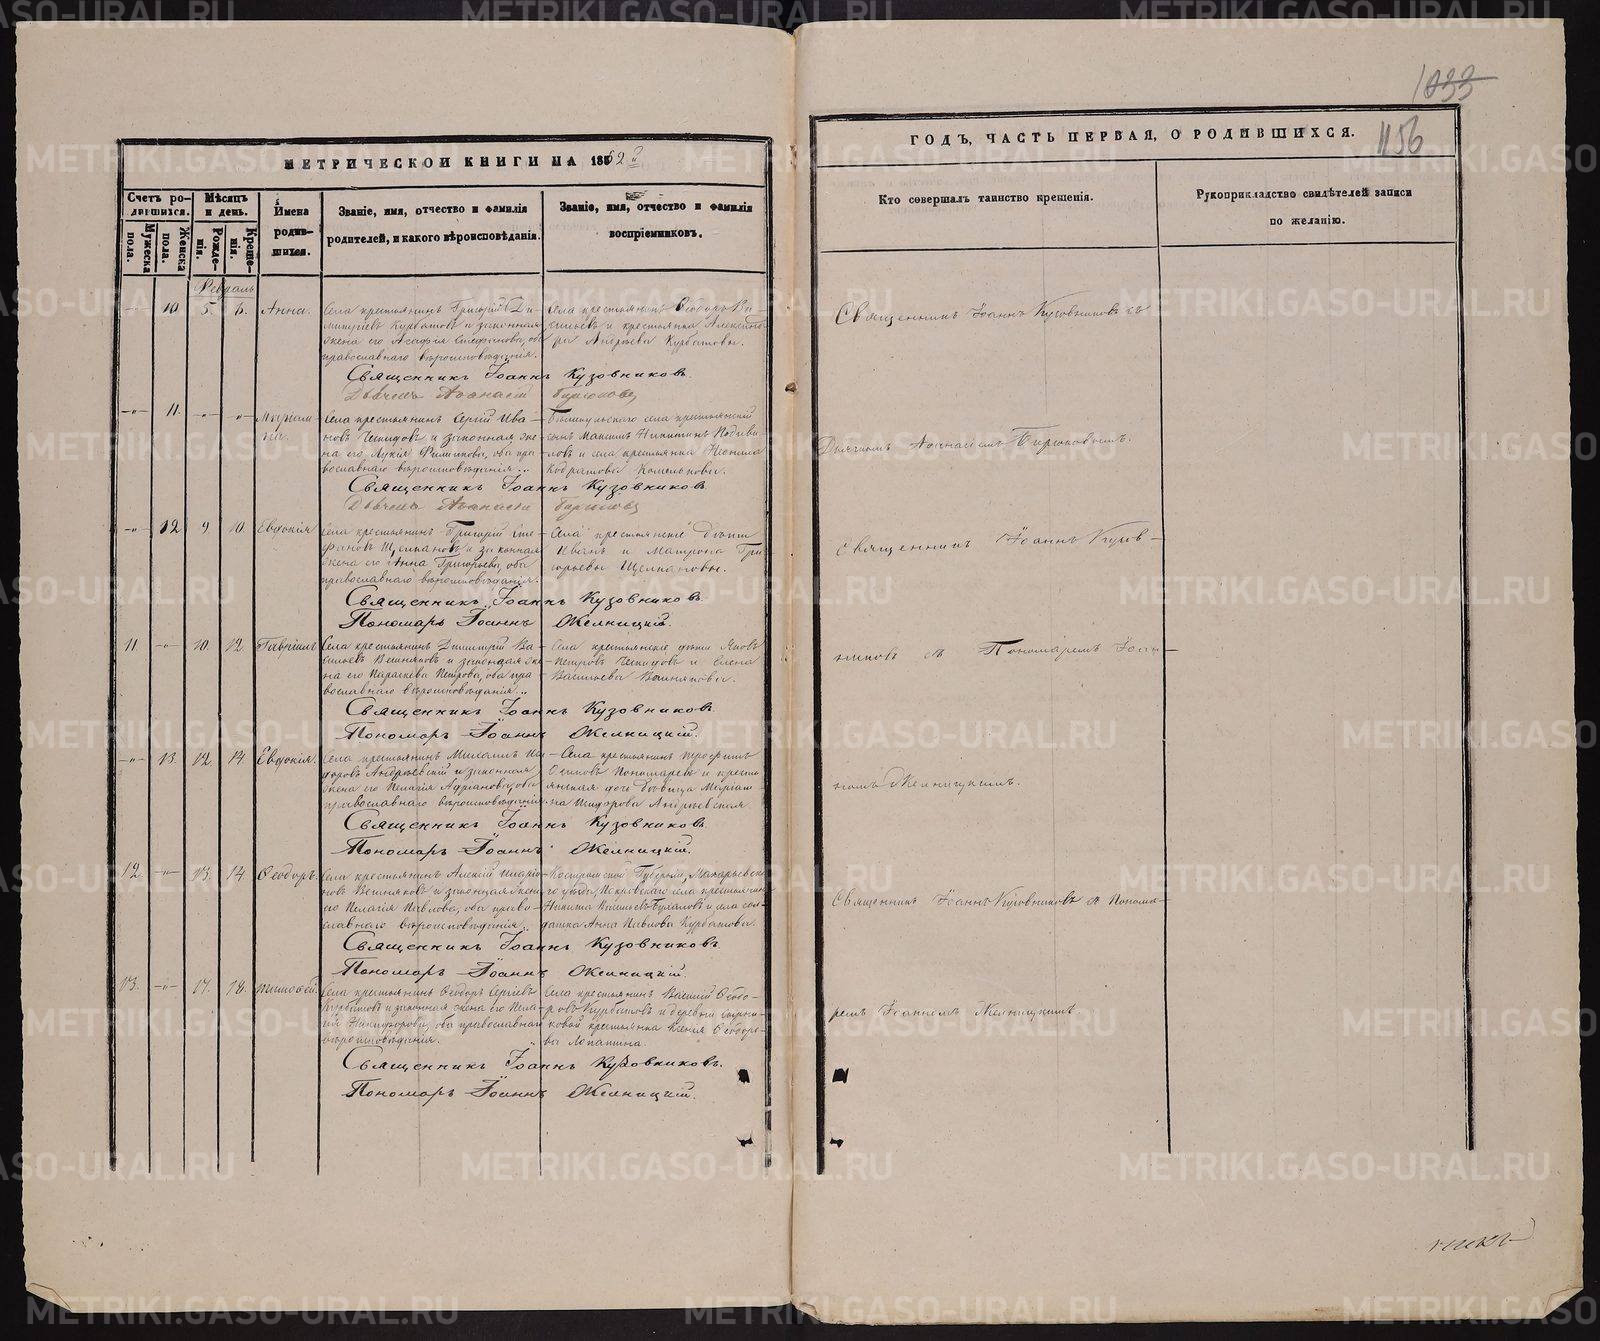 1033
МЕТРИЧЕСКОЙ КНИГИ НА 1862й
ГОДЪ, ЧАСТЬ ПЕРВАЯ, О РОДИВШИХСЯ.
1156
Счетъ родившихся.
Мужеска пола.
Женска пола.
Мѣсяцъ и день.
Рожденія.
Крещенія.
Имена родившихся.
Званіе, имя, отчество и фамилія
родителей, и какого вѣроисповѣданія.
Званіе, имя, отчество и фамилія
воспріемниковъ.
Кто совершалъ таинство крещенія.
Рукоприкладство свидѣтелей записи
по желанію.
Февраль
10. 5. 6. Анна.
Села крестьянинъ Григорій Ди-
митріевъ Курбатовъ и законная
жена его Агафія Стефанова, оба
православнаго вѣроисповѣданія.
Села крестьянинъ Ѳеодоръ Ва-
сильевъ и крестьянка Александ-
ра Андреева Курбатовы.
Священникъ Іоаннъ Кузовниковъ съ
Священникъ Іоаннъ Кузовниковъ.
Дьячекъ Аѳанасій Бирюковъ
11. Маріам-
на.
Села крестьянинъ Сергій Ива-
новъ и законная же-
на его Лукія Филипова, оба пра-
вославнаго вѣроисповѣданія.
села крестьянскій
сынъ Максимъ Никитинъ
и села крестьянка
Дьячкомъ Аѳанасіемъ Бирюковымъ.
Священникъ Іоаннъ Кузовниковъ
Дьячекъ Аѳанасій Бирюковъ
12 9 10. Евдокія
Села крестьянинъ Григорій Сте-
фановъ Щелкановъ и законная
жена его Анна Григорьева, оба
православнаго вѣроисповѣданія.
Села крестьянскіе дѣти
Иванъ и Матрона Гри-
горьевы Щелкановы.
Священникъ Іоаннъ Кузов-
Священникъ Іоаннъ Кузовниковъ.
Пономарь Іоаннъ Желницкій.
11. 10. 12 Гавріилъ
Села крестьянинъ Димитрій Ва-
сильевъ Вешняковъ и законная же-
на его Параскева Петрова, оба пра-
вославнаго вѣроисповѣданія.
Села крестьянскіе дѣти Яковъ
Петровъ и Елена
Васильева Вешнякова.
никовъ съ Пономаремъ Іоан-
Священникъ Іоаннъ Кузовниковъ
Пономарь Іоаннъ Желницкій.
13. 12. 14 Евдокія.
Села крестьянинъ Михаилъ
Андреевскій и законная
жена его Пелагія Адріанова, оба
православнаго вѣроисповѣданія
Села крестьянинъ
Осиповъ Пономаревъ и кресть-
янская дочь дѣвица Маріам-
на Андреевская
номъ Желницкимъ.
Священникъ Іоаннъ Кузовниковъ.
Пономарь Іоаннъ Желницкій.
12. 13. 14 Ѳеодоръ.
Села крестьянинъ Алексій Иларіо-
новъ Вешняковъ и законная жена
его Пелагія Павлова, оба право-
славнаго вѣроисповѣданія.
Костромской Губерніи, Макарьевска-
го уѣзда, Покровскаго села крестьянинъ
Никита Васильевъ и села сол-
датка Анна Павлова Курбатова.
Священникъ Іоаннъ Кузовниковъ съ Понома-
Священникъ Іоаннъ Кузовниковъ.
Пономарь Іоаннъ Желницкій.
13. 17. 18. Тимоѳей.
Села крестьянинъ Ѳеодоръ Сергіевъ
Курбатовъ и законная жена его Пела-
гія Никифорова, оба православнаго
вѣроисповѣданія.
Села крестьянинъ Василій Ѳеодо-
ровъ Курбатовъ и деревни
крестьянка Ксенія Ѳеодоро-
ва Лопатина.
ремъ Іоанномъ Желницкимъ
Священникъ Іоаннъ Кузовниковъ.
Пономарь Іоаннъ Желницкій.
METRIKI.GASO-URAL.RU